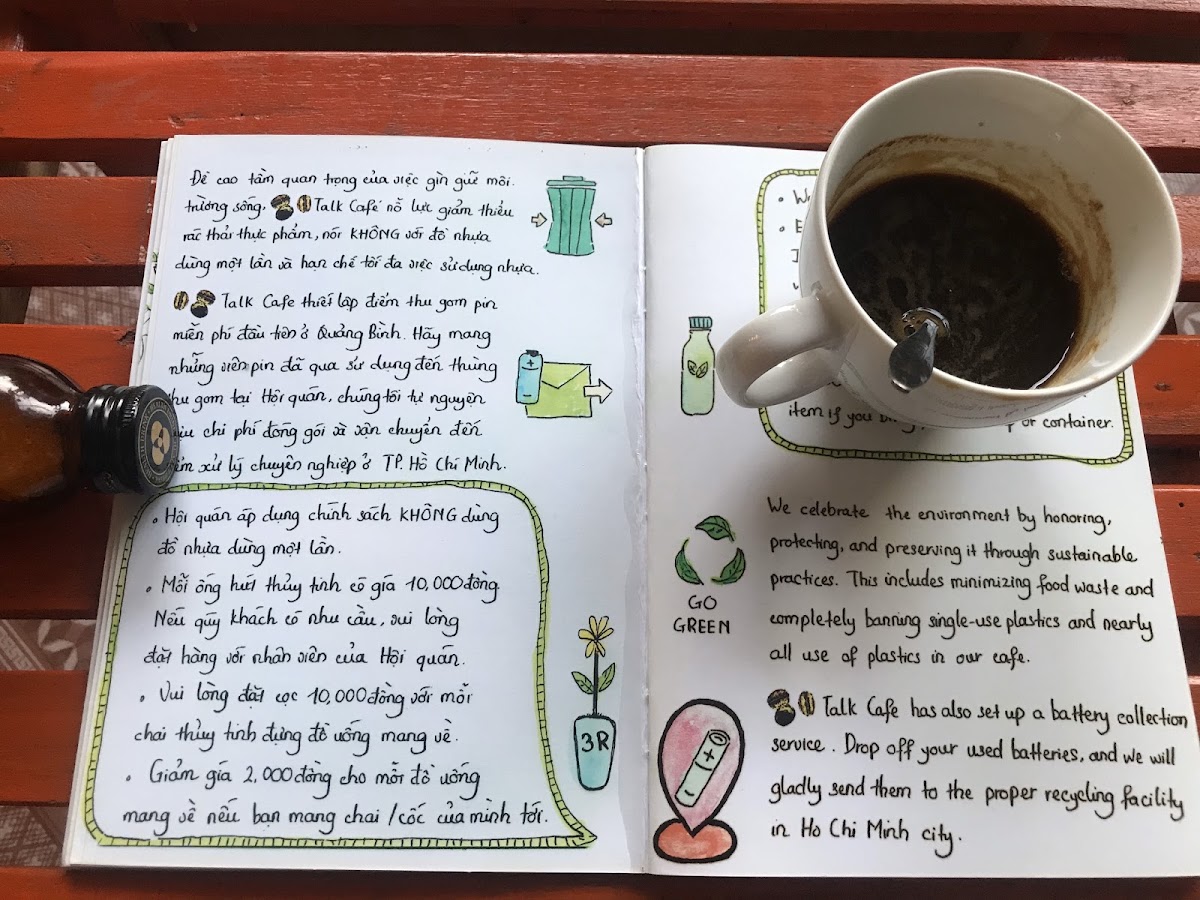 Đề cao tầm quan trọng của việc gìn giữ môi
trường sống, Talk Café nỗ lực giảm thiểu
rác thải thực phẩm, nói KHÔNG với đồ nhựa
dùng một lần và hạn chế tối đa việc sử dụng nhựa.
Talk Cafe thiết lập điểm thu gom pin
miễn phí đầu tiên ở Quảng Bình. Hãy mang
những viên pin đã qua sử dụng đến thùng
thu gom tại Hội quán, chúng tôi tự nguyện
chi phí đóng gói và vận chuyển đến
xử lý chuyên nghiệp ở TP. Hồ Chí Minh.
• Hội quán áp dụng chính sách KHÔNG dùng
đồ nhựa dùng một lần.
• Mỗi ống hút thủy tinh có gía 10,000 đồng
Nếu qúy khách có nhu cầu, vui lòng
đặt hàng với nhân viên của Hội quán.
• Vui lòng đặt cọc 10,000 đồng với mỗi
chai thủy tinh đựng đồ uống mang về.
• Giảm gía 2,000 đồng cho mỗi đồ uống
mang về nếu bạn mang chai / cốc của mình tới.
3R
item if you or container.
GO
GREEN
We celebrate the environment by honoring,
protecting, and preserving it through sustainable
practices. This includes minimizing food waste and
completely banning single-use plastics and nearly
all use of plastics in our cafe.
Talk Cafe has also set up a battery collection
service. Drop off your used batteries, and we will
gladly send them to the proper recycling facility
in Ho Chi Minh city.